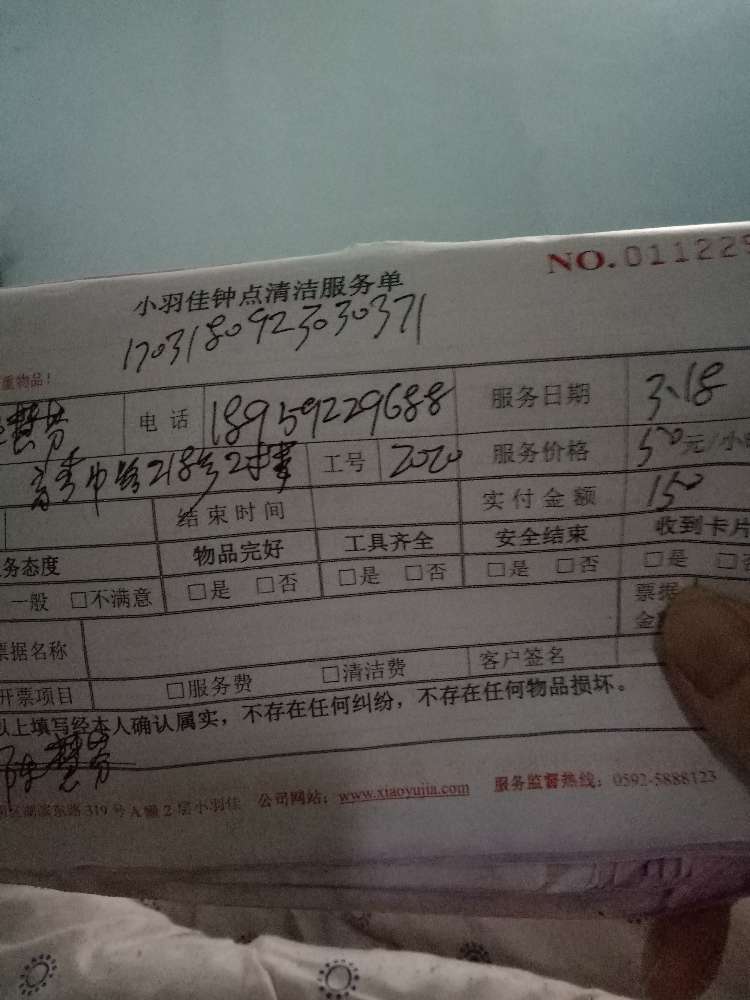 NO.011229
小羽佳钟点清洁服务单
170318092303037​1
重物品！
慧芳 电话 18959229688 服务日期 3.18
218号2 工号 2020 服务价格 50元/小
结束时间 实付金额 150
务态度 物品完好 工具齐全 安全结束 收到卡片
一般 □不满意 □是 □否 □是 □否 □是 □否 □是 □否
票据名称 票据
金
开票项目 □服务费 □清洁费 客户签名
以上填写经本人确认属实，不存在任何纠纷，不存在任何物品损坏。
慧芳
区湖滨东路319号A幢2层小羽佳 公司网站：www.xiaoyujia.com 服务监督热线：0592-5888123